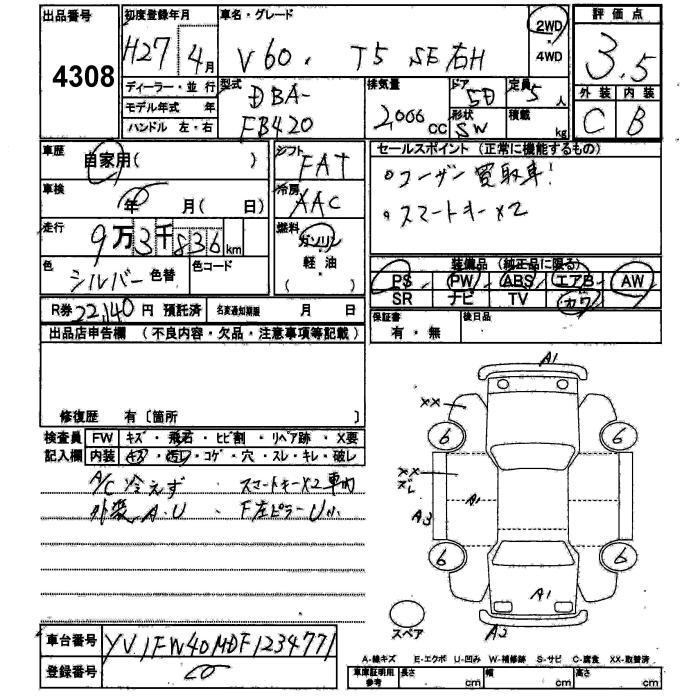 出品番号
4308
初度登録年月
H27 4月
車名・グレード
V60. T5 SE右H
2WD
4WD
評価点
3.5
外装 内装
C B
ディーラー・並行
モデル年式 年
ハンドル 左・右
型式
DBA-
FB420
排気量
2,000 cc
ドア 5D
形状 SW
定員 5人
積載 kg
車歴 自家用( )
車検 年 月( 日)
走行 9万3千836km
色 シルバー 色替 色コード
シフト FAT
冷房 AAC
燃料 ガソリン
軽油
( )
セールスポイント(正常に機能するもの)
。コーザン買取車!
・スマートキーX2
装備品(純正品に限る)
PS PW ABS エアB AW
SR ナビ TV カワ
R券 22,140円 預託済 名変通知期限 月 日
保証書 有・無
後日品
出品店申告欄(不良内容・欠品・注意事項等記載)
修復歴 有〔箇所 〕
検査員 FW キズ・飛石・ヒビ割・リペア跡・X要
記入欄 内装 キズ・汚れ・コゲ・穴・スレ・キレ・破レ
A/C 冷えず ・スマートキーX2 車内
外装 A.U ・F左ピラーU小
A1
XX
6 6
XX
XL
A1
A3
6 6
A1
スペア
A2
車台番号 YV1FW40MDF1234771
登録番号
A-線キズ E-エクボ U-凹み W-補修跡 S-サビ C-腐食 XX-取替済
車庫証明用参考 長さ cm 幅 cm 高さ cm